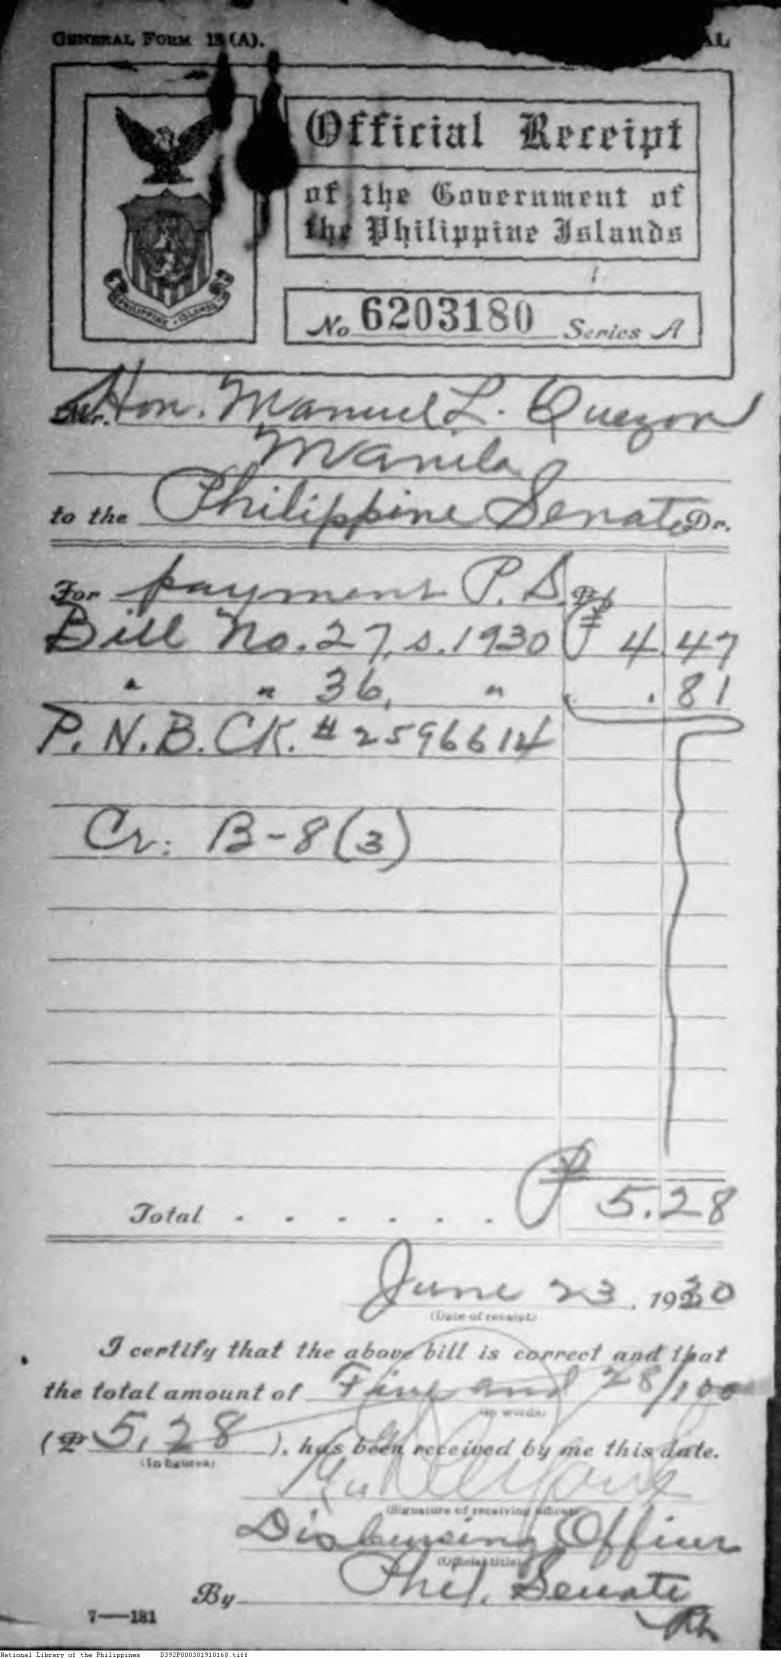 GENERAL FORM 13 (A).
AL
Official Receipt
of the Government of
the Philippine Islands
PHILIPPINE ISLANDS
No 6203180 Series A
Mr. Hon. Manuel L. Quezon
Manila
to the Philippine Senate Dr.
For payment P. S.
Bill No. 27, s. 1930 ₱ 4.47
" " 36, " .81
P. N. B. CK. # 2596614
Cr: B-8(3)
Total . . . . . . ₱ 5.28
June 23, 1930
(Date of receipt)
I certify that the above bill is correct and that
the total amount of Five and 28/100
(In words)
(₱ 5.28), has been received by me this date.
(In figures)
(Signature of receiving officer)
Disbursing Officer
(Official title)
Phil. Senate
By
7—181
National Library of the Philippines D392P000301910168.tiff